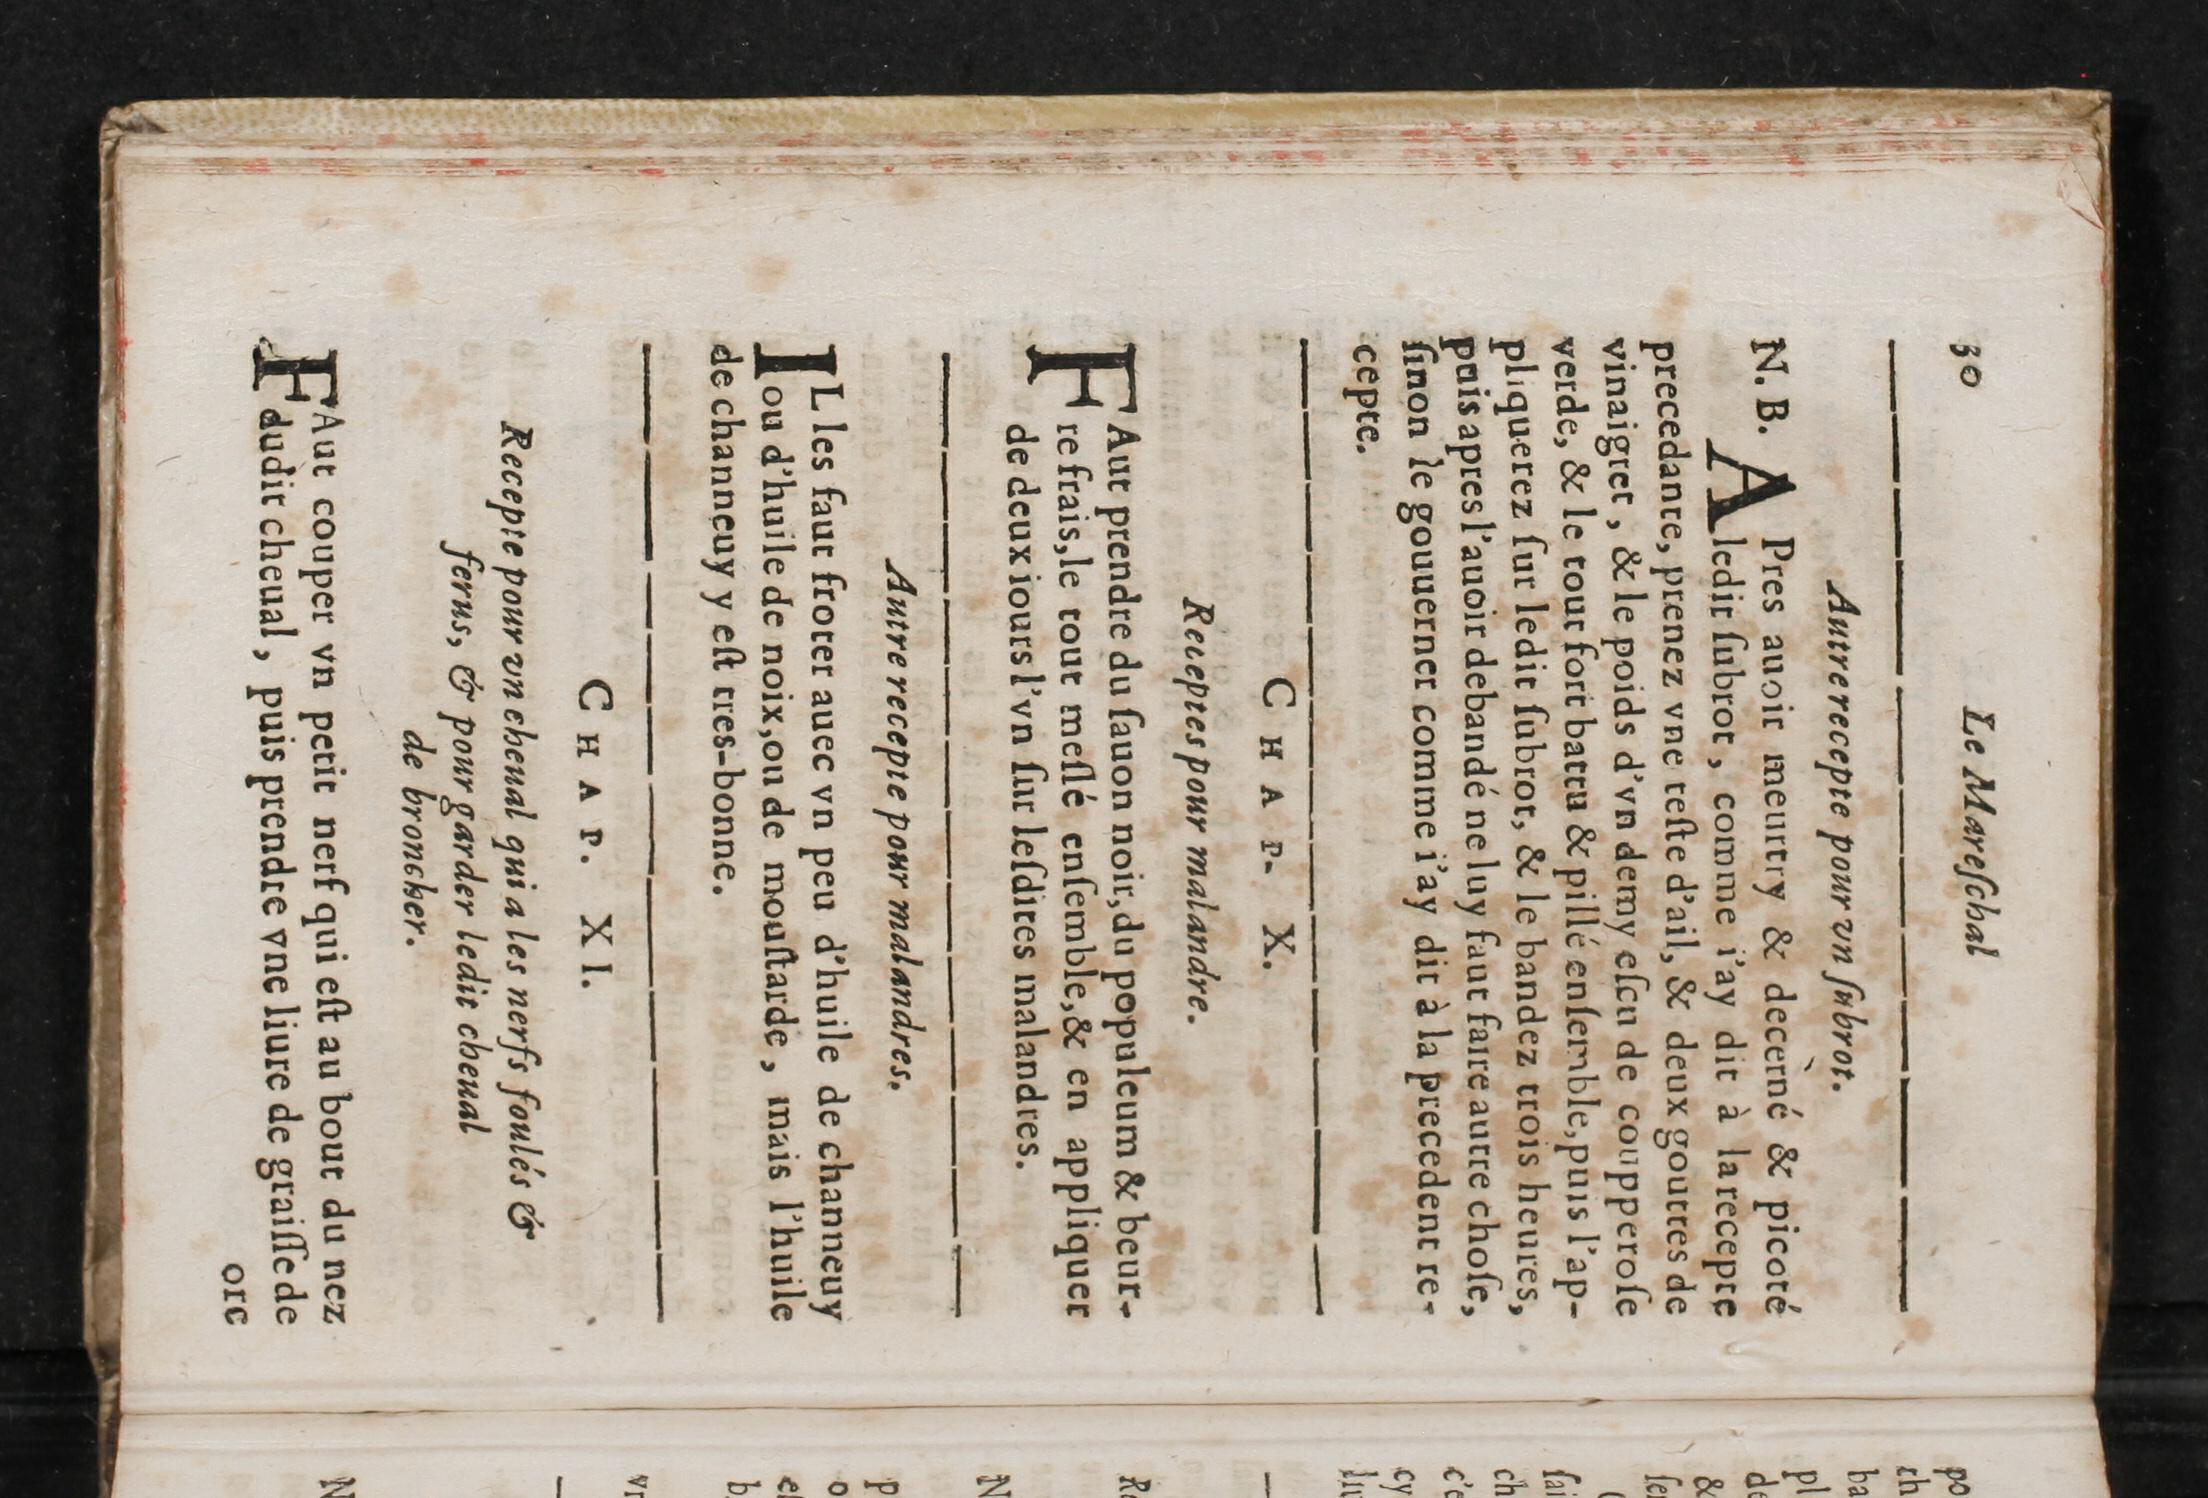 30 Le Mareſchal
Autre recepte pour vn ſubrot.
N. B. APres auoir meurtry & decerné & picoté
ledit ſubrot, comme i'ay dit à la recepte
precedante, prenez vne teſte d'ail, & deux gouttes de
vinaigret, & le poids d'vn demy eſcu de coupperoſe
verde, & le tout fort battu & pillé enſemble, puis l'ap-
pliquerez ſur ledit ſubrot, & le bandez trois heures,
puis apres l'auoir debandé ne luy faut faire autre choſe,
ſinon le gouuerner comme i'ay dit à la precedent re-
cepte.
CHAP. X.
Receptes pour malandre.
FAut prendre du ſauon noir, du populeum & beur-
re frais, le tout meſlé enſemble, & en appliquer
de deux iours l'vn ſur leſdites malandres.
Autre recepte pour malandres.
IL les faut froter auec vn peu d'huile de channeuy
ou d'huile de noix, ou de mouſtarde, mais l'huile
de channeuy y eſt tres-bonne.
CHAP. XI.
Recepte pour vn cheual qui a les nerfs foulés &
ferus, & pour garder ledit cheual
de broncher.
FAut couper vn petit nerf qui eſt au bout du nez
dudit cheual, puis prendre vne liure de graiſſe de
orc
po
th
ba
pl
de
&
ſer
ſai
ch
c'e
cy
liu
Re
N
p
o
b
vn
N